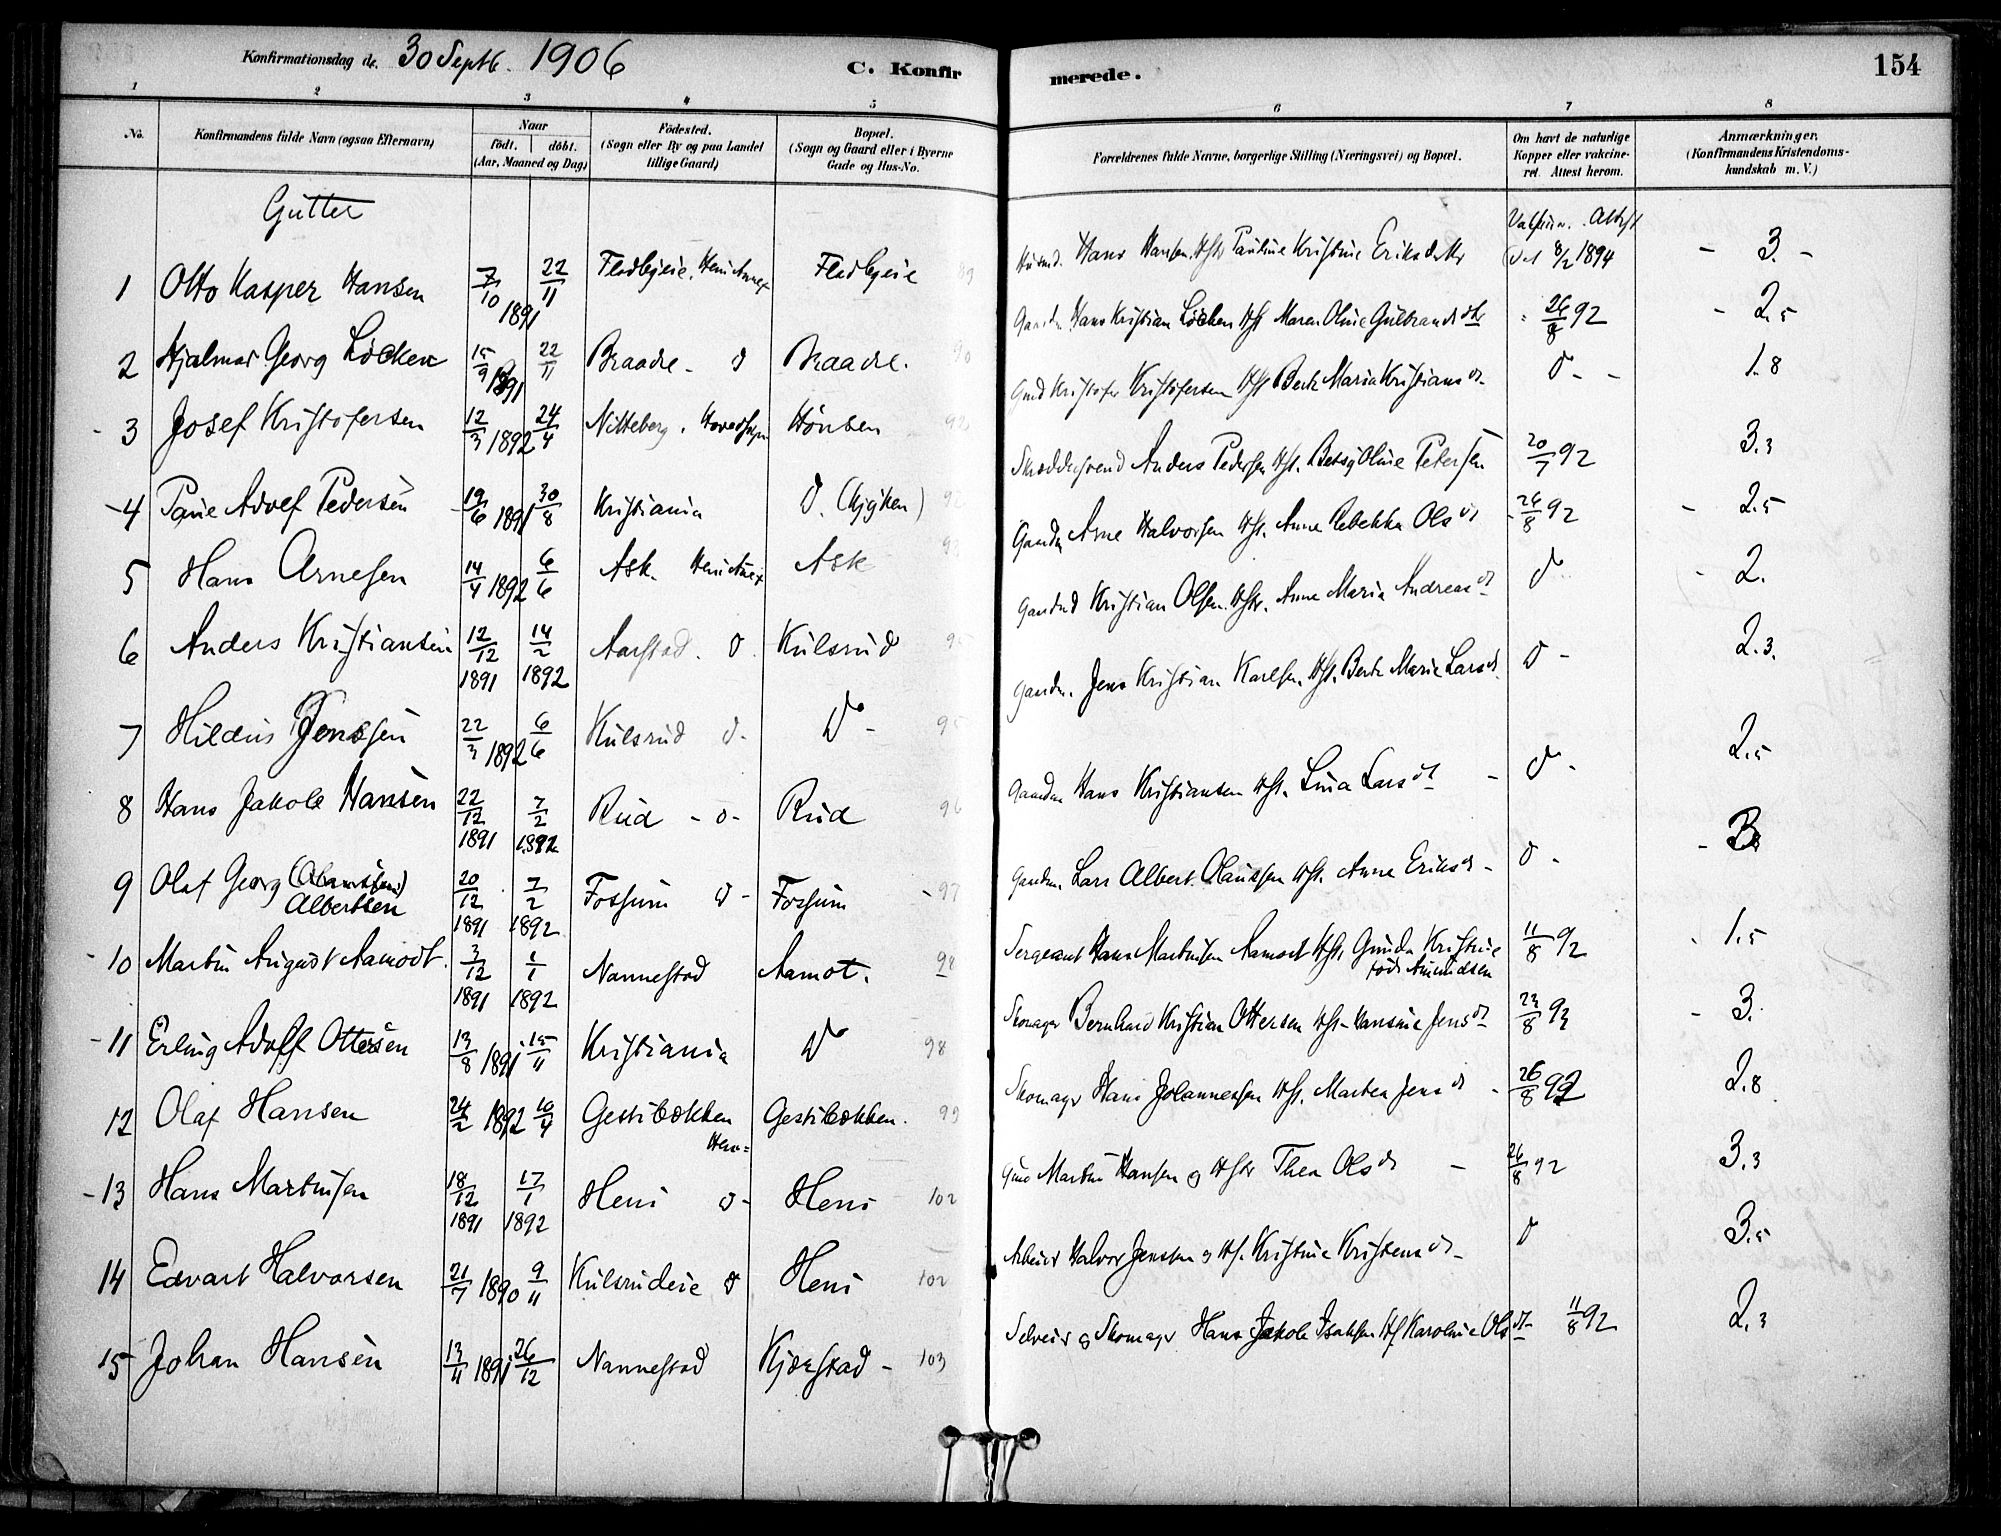 Konfirmationsdag de. 30 Septb. 1906
C. Konfirmerede.
154
1 2 3 4 5 6 7 8
No.
Konfirmandens fulde Navn (ogsaa Efternavn)
Naar
födt. döbt.
(Aar, Maaned og Dag)
Födested.
(Sogn eller By og paa Landet
tillige Gaard)
Bopæl.
(Sogn og Gaard eller i Byerne
Gade og Hus-No.
Forældrenes fulde Navne, borgerlige Stilling (Næringsvei) og Bopæl.
Om havt de naturlige
Kopper eller vakcine-
ret. Attest herom.
Anmærkninger.
(Konfirmandens Kristendoms-
kundskab m. V.)
Gutter
1 Otto Kasper Hansen 7/10 1891 22/11 Fladbyeie 89 Hans Hansen Pauline Kristine Eriksdatter Attest 8/2 1894 - 3. -
2 Hjalmar Georg Löcken 15/9 1891 22/11 Braade - d Braade. 90 Gaardm Hans Kristian Löcken Hst Maren Oline Gulbrandsdtr 26/8 92 - 2.5
- 3 Josef Kristofersen 12/3 1892 24/4 Nitteberg. Hovedsogn Hönsen Gmd Kristofer Kristofersen Hst Berte Maria Kristiansd d - - 1.8
- 4 Adolf Pedersen 19/6 1891 30/8 Kristiania d. Anders Pedersen Hst. Betsy Oline Petersen 20/7 92 3.3
5 Hans Arnesen 14/4 1892 6/6 Ask. Heni Anex Ask Gaardm Arne Halvorsen Hst. Anne Rebekka Olsd 26/8 92 - 2.5
6 Anders Kristiansen 12/12 1891 14/2 1892 Aarstad. d. Kulsrud Gaardmd Kristian Olsen Hst. Anne Maria Andreasd d - 2.
7 Hildus Jenssen 22/3 1892 6/6 Kulsrud d - d - 95 Gaardm. Jens Kristian Karlsen Hst. Berte Marie Larsd d - 2.3.
8 Hans Jakob Hansen 22/12 1891 7/2 1892 Rud - d - Rud 96 Gaardm Hans Kristiansen Hst. Lina Larsd - d - 2.5
9 Olaf Georg Albertsen 20/12 1891 7/2 1892 Fossum d - Fossum - 97 Gaardm. Lars Albert Olaussen Hst. Anne Eriksd - d -
- 10 Martin August Aamodt. 3/12 1891 1/1 1892 Nannestad Aamot. 98 Sergeant Hans Martinsen Aamodt Hst. Gunda Kristine
född Amundsen 11/8 92 - 1.5
- 11 Erling Adolf Ottersen 13/8 1891 15/11 Kristiania d 98 Skomager Bernhard Kristian Ottersen Hst - Hansine Jensd 23/8 93 - 3.
12 Olaf Hansen 24/2 1892 10/4 Gestibækken
Heni Gestibækken. 99 Skomager Hans Johannessen Hst. Marten Jensd - 26/8 92 2.8
- 13 Hans Martinsen 18/12 1891 17/1 1892 Heni d - Heni 102 Gmd Martin Hansen og Hst Thea Olsd - 26/8 92 3.3
14 Edvart Halvorsen 21/7 1890 9/11 Kulsrudeie d Heni 102 Arbeider Halvor Jenssen og Hst. Kristine Kristensd - d 3.5
15 Johan Hansen 13/11 1891 26/12 Nannestad Kjærstad - 103 Selveier og Skomager Hans Jakob Isaksen Hst Karoline Olsd - 11/8 92 2.3